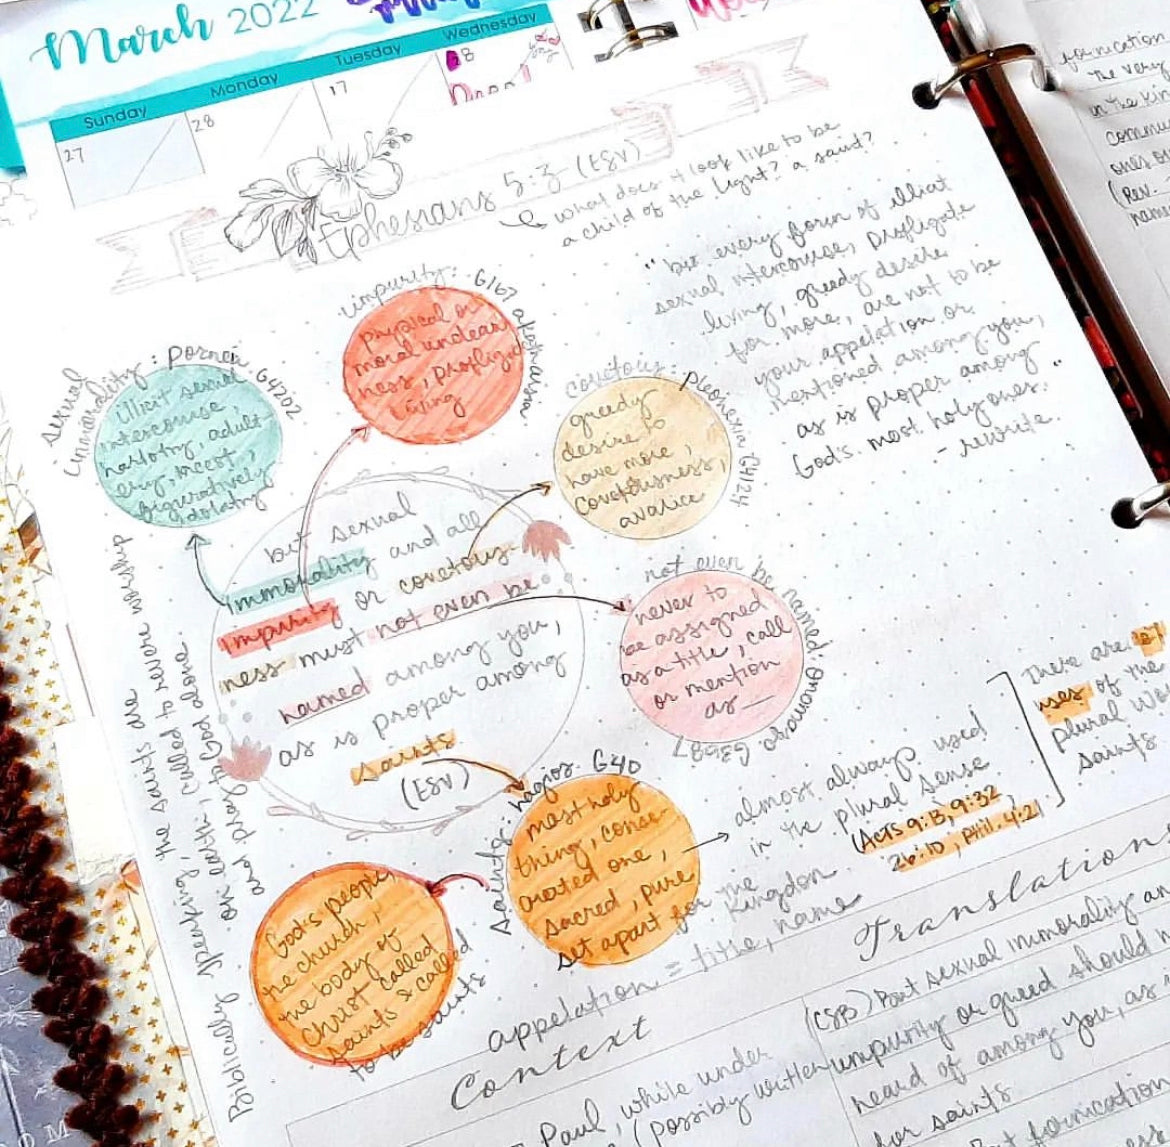 March 2022
Sunday
Monday
Tuesday
Wednesday
27
28
17
Ephesians 5:3 (ESV)
what does it look like to be
a child of the light? a saint?
"but every form of illicit
sexual intercourse, profligate
living, greedy desire
for more, are not to be
your appelation or
mentioned among you,
as is proper among
God's most holy ones."
- rewrite.
impurity: G167 akatharsia
physical or
moral unclean
ness, profligate
living
sexual
immorality: porneia G4202
illicit sexual
intercourse,
harlotry, adult
ery, incest,
figuratively
idolatry
covetous: pleonexia G4124
greedy
desire to
have more,
covetousness,
avarice
but sexual
immorality and all
impurity or covetous-
ness must not even be
named among you,
as is proper among
saints
(ESV)
not even be named: onomazo G3687
never to
be assigned
as a title, call
or mention
as __
saints: hagios. G40
most holy
thing, conse-
crated one,
sacred, pure
set apart for the
Kingdom.
almost always used
in the plural sense
(Acts 9:13, 9:32,
26:10, Phil. 4:21
There are
uses of the
plural
saints
God's people
the church,
the body of
Christ called
saints & called
to be saints
Biblically speaking, the saints are
on earth, called to revere worship
and pray to God alone.
appelation = title, name
Context
Paul, while under
(possibly written
Translation
(CSB) But sexual immorality
impurity or greed should
heard of among you, as
for saints
But fornication
fornication
the very
in the
(Rev.